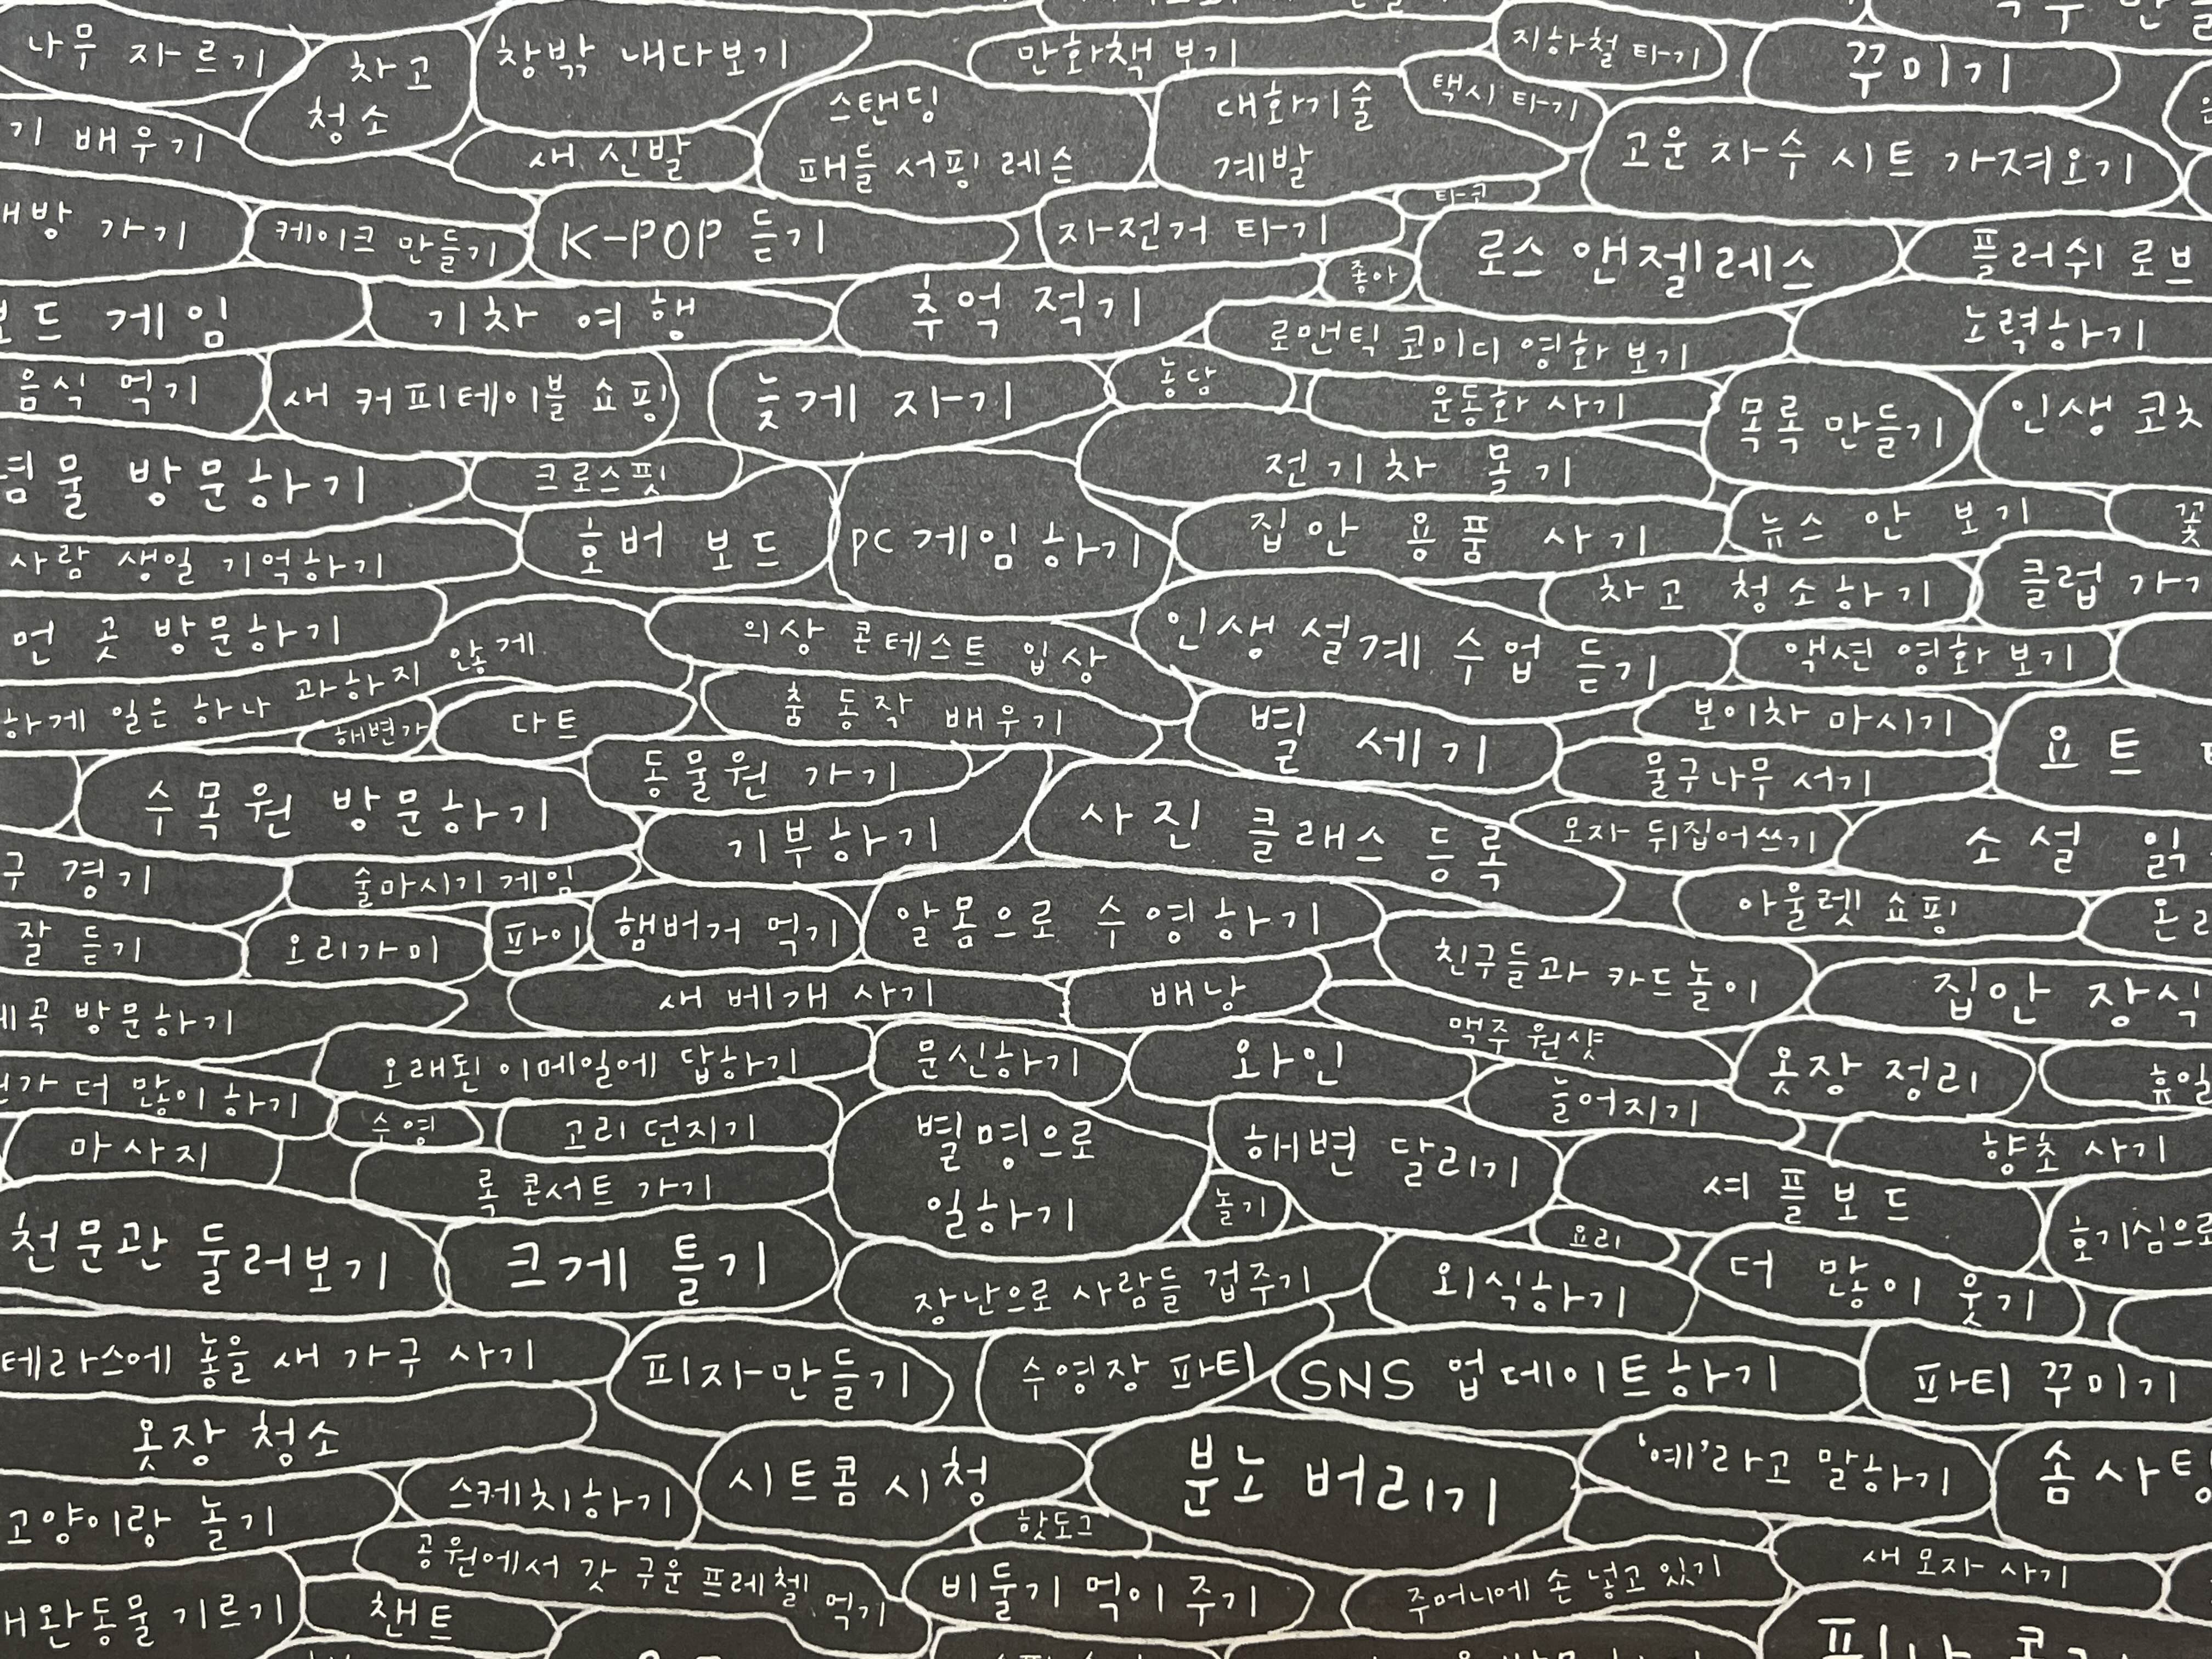 나무 자르기
차고
청소
창밖 내다보기
만화책 보기
지하철 타기
꾸미기
기 배우기
새 신발
스탠딩
패들 서핑 레슨
대화기술
계발
택시 타기
고운 자수 시트 가져오기
가기
케이크 만들기
K-POP 듣기
자전거 타기
타코
좋아
로스 앤젤레스
플러쉬 로브
게임
기차 여행
추억 적기
로맨틱 코미디 영화 보기
노력하기
음식 먹기
새 커피테이블 쇼핑
늦게 자기
농담
운동화 사기
목록 만들기
인생 코치
방문하기
크로스핏
전기차 몰기
사람 생일 기억하기
호버 보드
PC 게임하기
집안 용품 사기
뉴스 안 보기
꽃
차고 청소하기
클럽 가기
먼 곳 방문하기
의상 콘테스트 입상
인생 설계 수업 듣기
액션 영화 보기
하게 일은 하나 과하지 않게
해변가
다트
춤 동작 배우기
별 세기
보이차 마시기
요트
수목원 방문하기
동물원 가기
물구나무 서기
기부하기
사진 클래스 등록
모자 뒤집어쓰기
소설 읽
구 경기
술마시기 게임
아울렛 쇼핑
잘 듣기
오리가미
파이
햄버거 먹기
알몸으로 수영하기
친구들과 카드놀이
집안 장식
계곡 방문하기
새 베개 사기
배낭
맥주 원샷
오래된 이메일에 답하기
문신하기
와인
옷장 정리
휴일
가 더 많이 하기
수영
고리 던지기
별명으로
일하기
해변 달리기
늘어지기
향초 사기
마사지
록 콘서트 가기
놀기
셔플보드
호기심으로
천문관 둘러보기
크게 틀기
요리
장난으로 사람들 겁주기
외식하기
더 많이 웃기
테라스에 놓을 새 가구 사기
피자만들기
수영장 파티
SNS 업데이트하기
파티 꾸미기
옷장 청소
시트콤 시청
분노 버리기
'예'라고 말하기
솜사탕
고양이랑 놀기
스케치하기
핫도그
공원에서 갓 구운 프레첼 먹기
비둘기 먹이 주기
주머니에 손 넣고 있기
새 모자 사기
애완동물 기르기
챈트